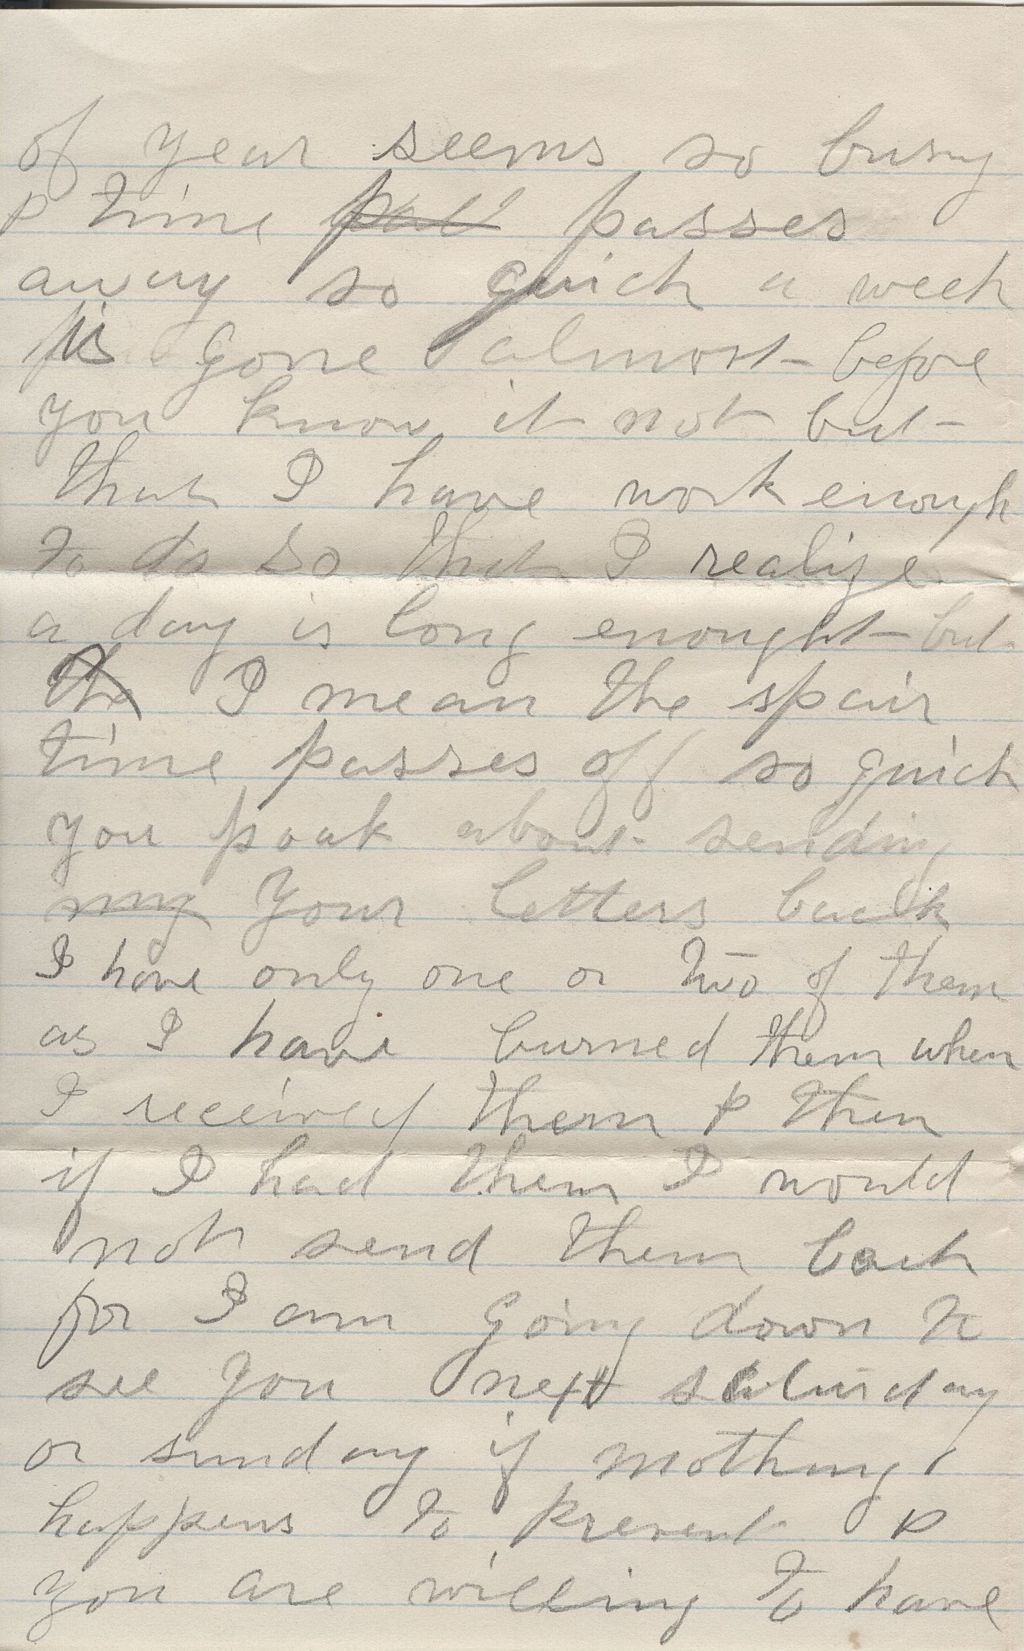 of year seems so busy
& time pass passes
away so quick a week
is gone almost before
you know it not but
that I have work enough
to do so that I realize
a day is long enought but
the I mean the spair
time passes off so quick
you spoak about sending
my your letters back
I have only one or two of them
as I have burned them when
I received them & then
if I had them I would
not send them back
for I am going down to
see you next saturday
or sunday if nothing
happens to prevent &
you are willing to have